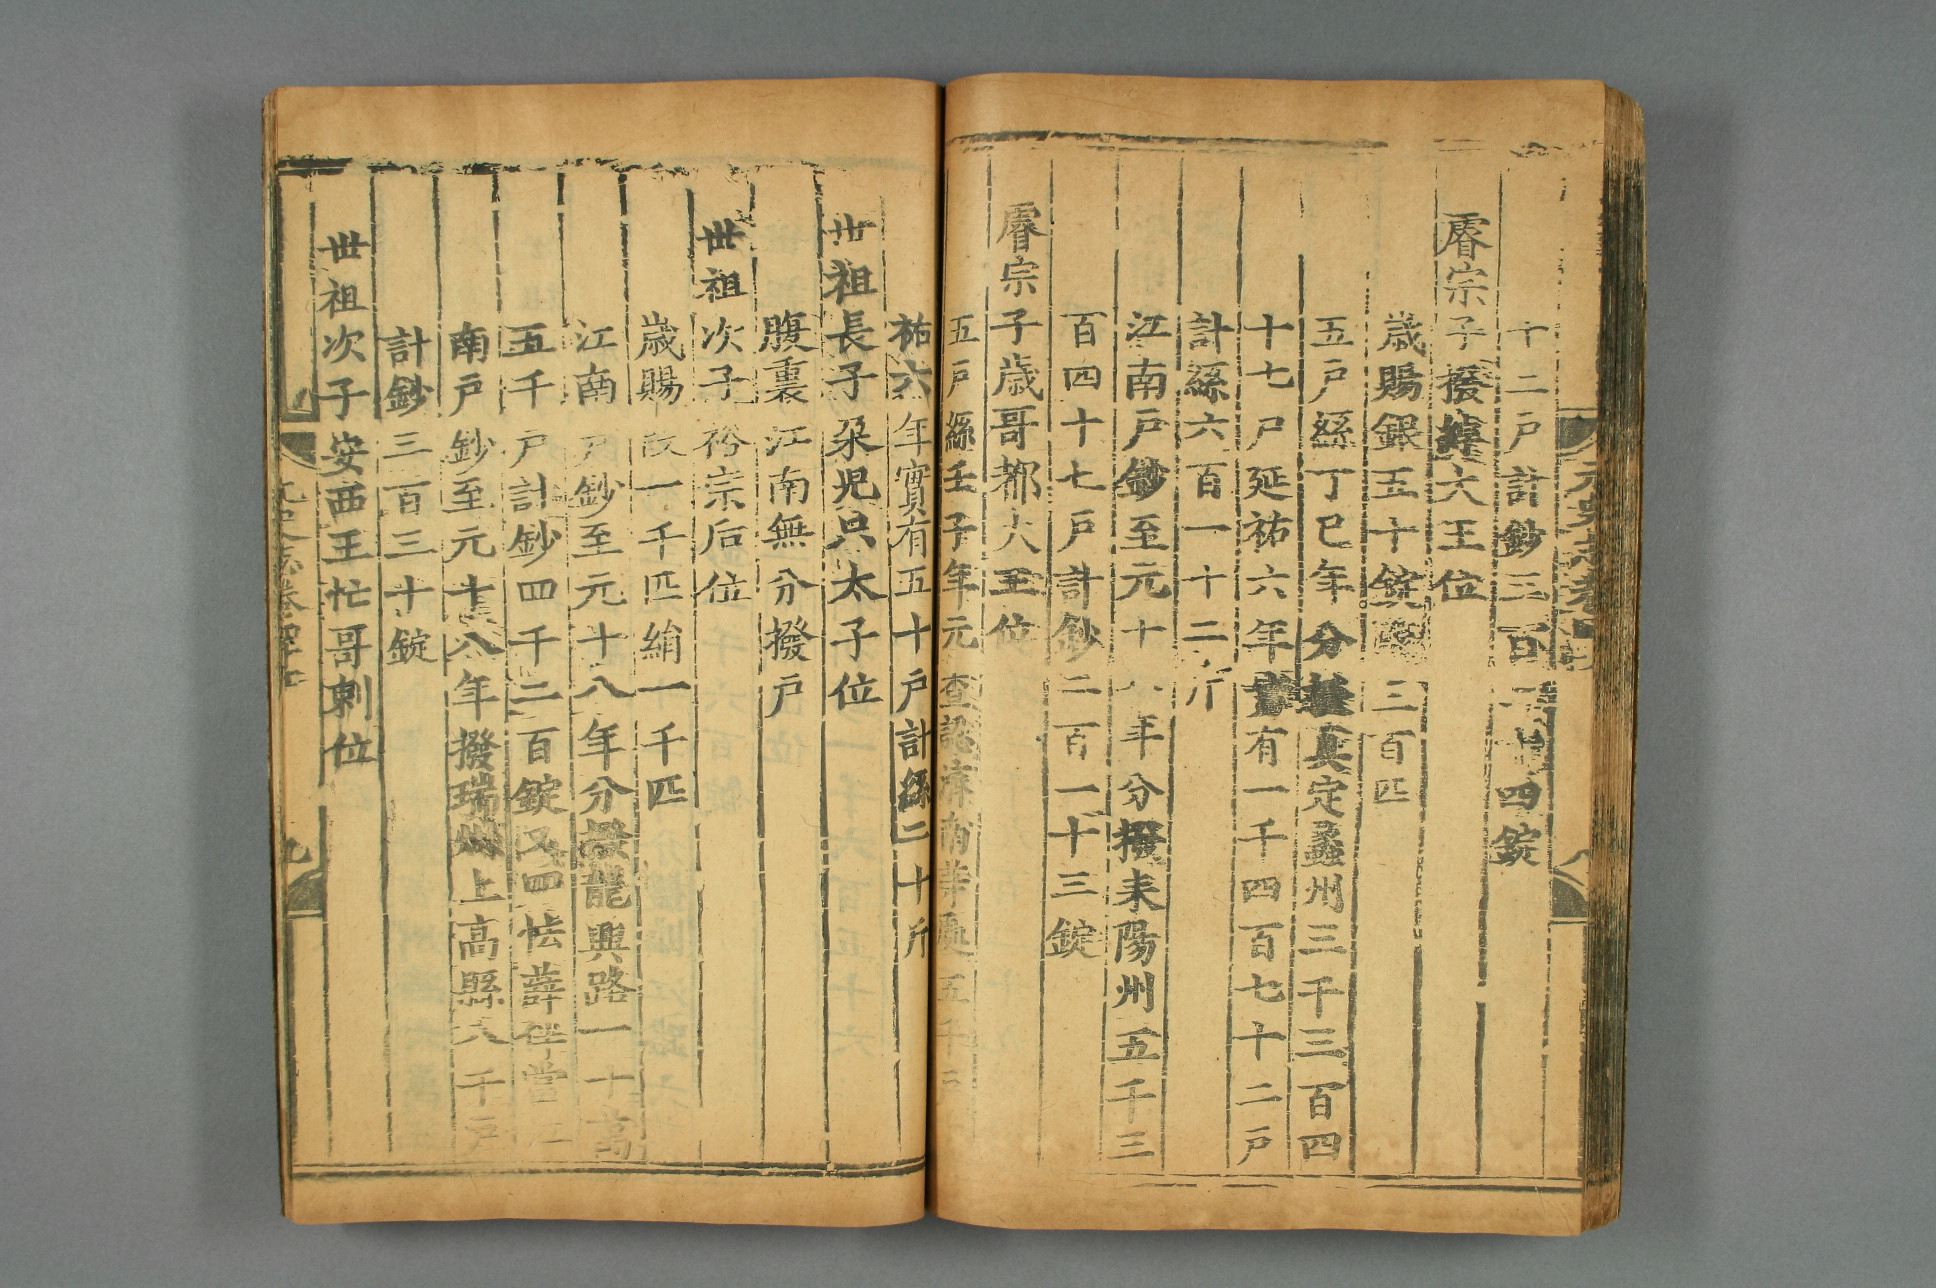 十二戶計鈔三百二十四錠
睿宗子撥綽六王位
歲賜銀五十錠段三百匹
五戶絲丁巳年分撥真定蠡州三千三百四
十七戶延祐六年實有一千四百七十二戶
計絲六百一十二斤
江南戶鈔至元十八年分撥耒陽州五千三
百四十七戶計鈔二百一十三錠
睿宗子歲哥都大王位
五戶絲壬子年元查認濟南等處五千
祐六年實有五十戶計絲二十斤
世祖長子朶兒只太子位
腹裏江南無分撥戶
世祖次子裕宗后位
歲賜段一千匹絹一千匹
江南戶鈔至元十八年分撥龍興路一十萬
五千戶計鈔四千二百錠又四怯薛伴當江
南戶鈔至元十八年撥瑞州上高縣八千戶
計鈔三百三十錠
世祖次子安西王忙哥剌位
元史志卷四十
九